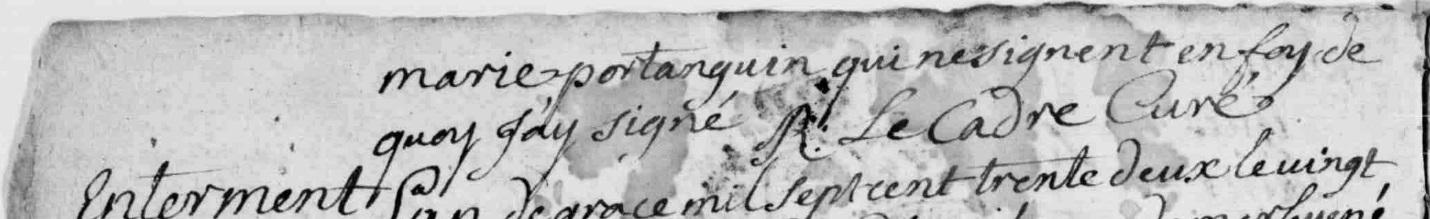 marie portanguin qui ne signent en foy de
quoy J'ay signé R: Le Cadre Curé
Enterment L'an de grace mil sept cent trente deux le vingt